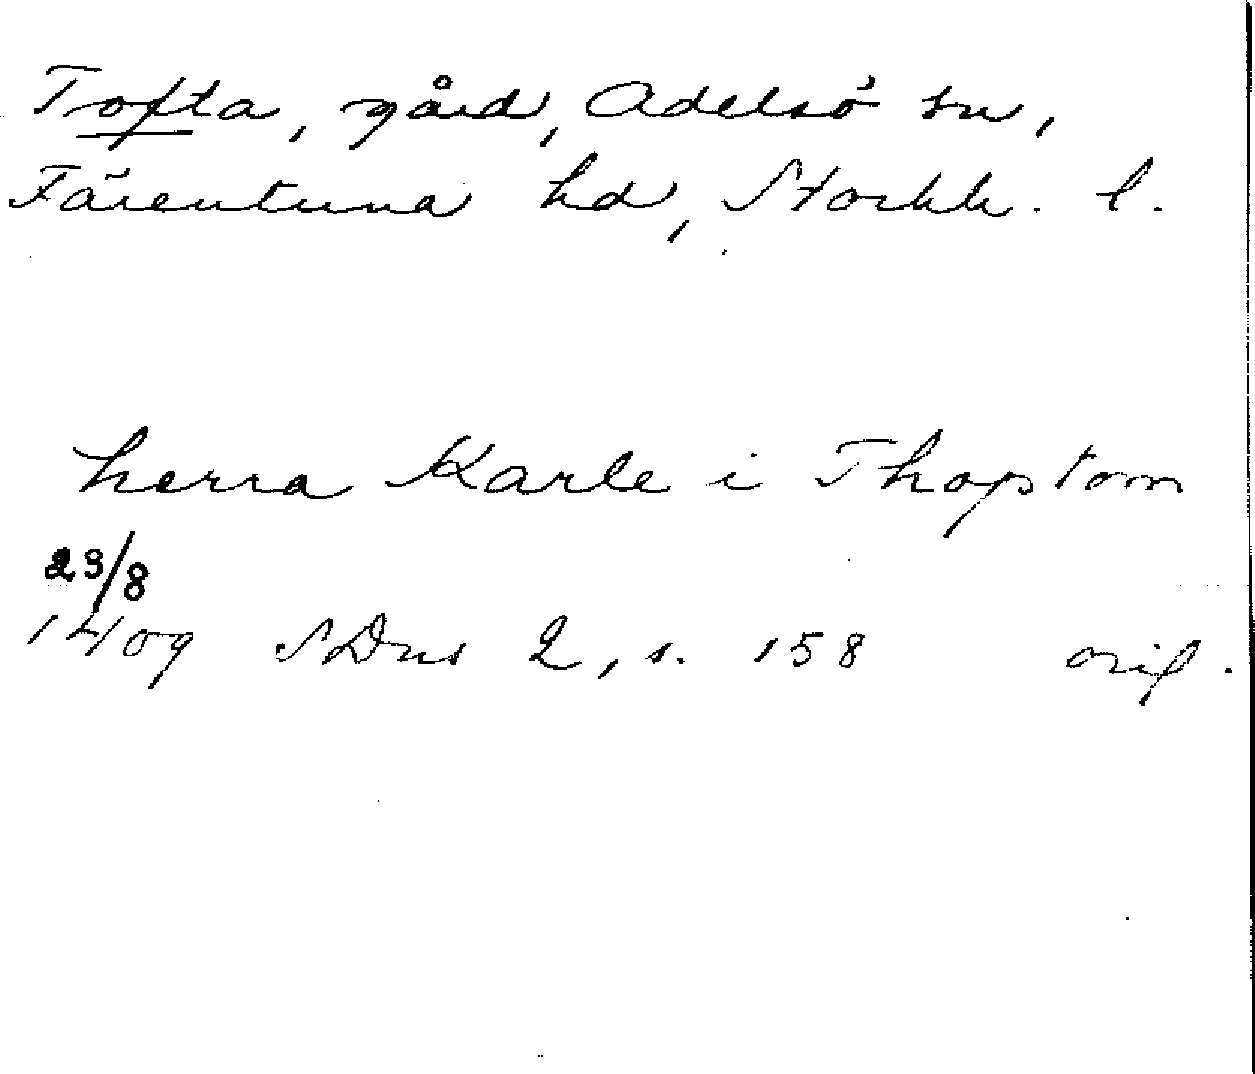 Tofta, gård, Adelsö sn,
Färentuna hd, Stockh. l.
herra Karle i Thoptom
23/8
1409 SDns 2, s. 158 orig.